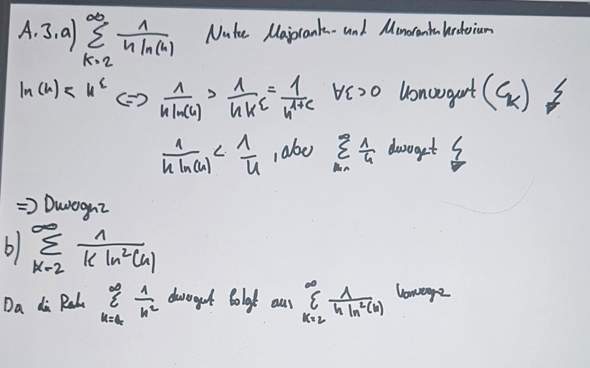 A.3.a) ∞∑k=2 1/(k ln(k)) Nutze Majoranten- und Minorantenkriterium
ln(k) < k^ε <=> 1/(k ln(k)) > 1/(k k^ε) = 1/k^(1+ε) ∀ε>0 konvergiert (C_k) ↯
1/(k ln(k)) < 1/k, aber ∞∑ 1/k divergiert ↯
=> Divergenz
b) ∞∑k=2 1/(k ln²(k))
Da die Reihe ∞∑ 1/k² divergiert folgt aus ∞∑k=2 1/(k ln²(k)) Konvergenz